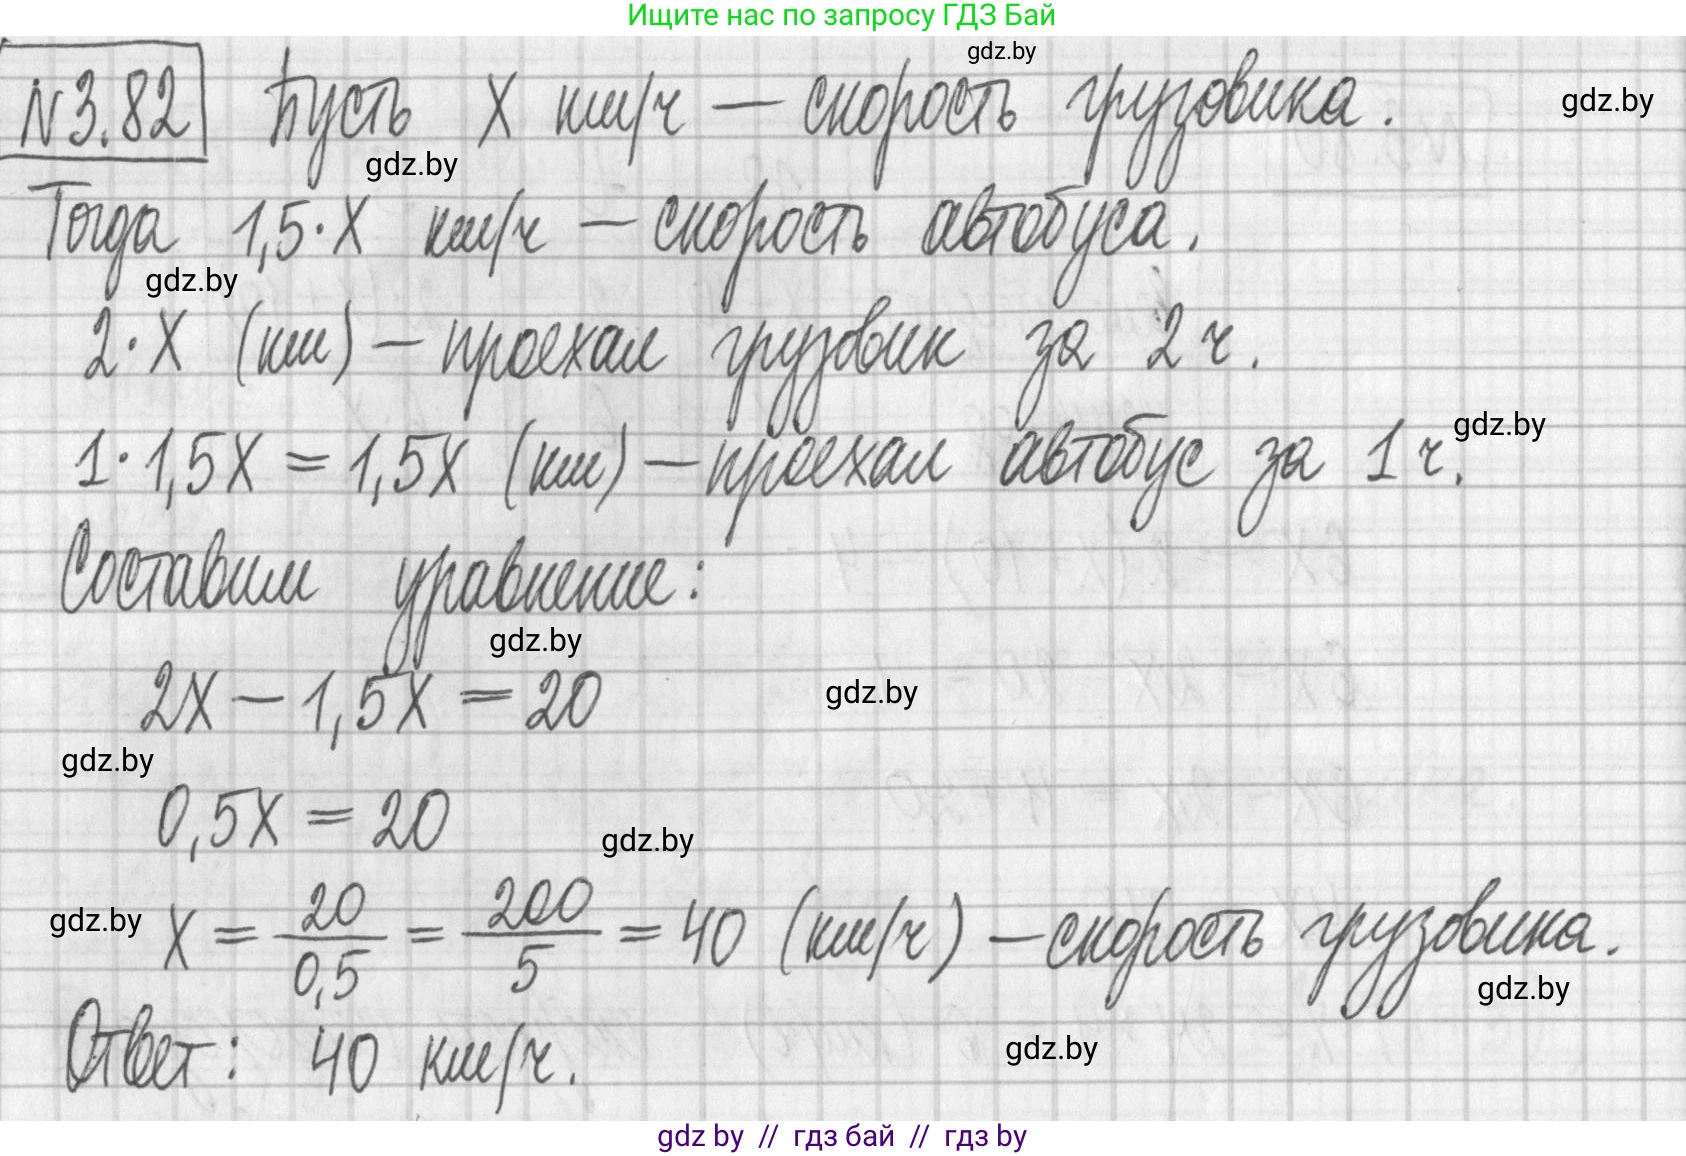 Ищите нас по запросу ГДЗ Бай
gdz.by
№3.82 Пусть x км/ч — скорость грузовика.
gdz.by
gdz.by
Тогда 1,5·x км/ч — скорость автобуса.
gdz.by
2·x (км) — проехал грузовик за 2 ч.
gdz.by
1·1,5x = 1,5x (км) — проехал автобус за 1 ч.
Составим уравнение:
gdz.by
2x − 1,5x = 20
gdz.by
gdz.by
0,5x = 20
gdz.by
gdz.by
x = 20/0,5 = 200/5 = 40 (км/ч) — скорость грузовика.
gdz.by
Ответ: 40 км/ч.
gdz.by
gdz by // гдз бай // гдз by